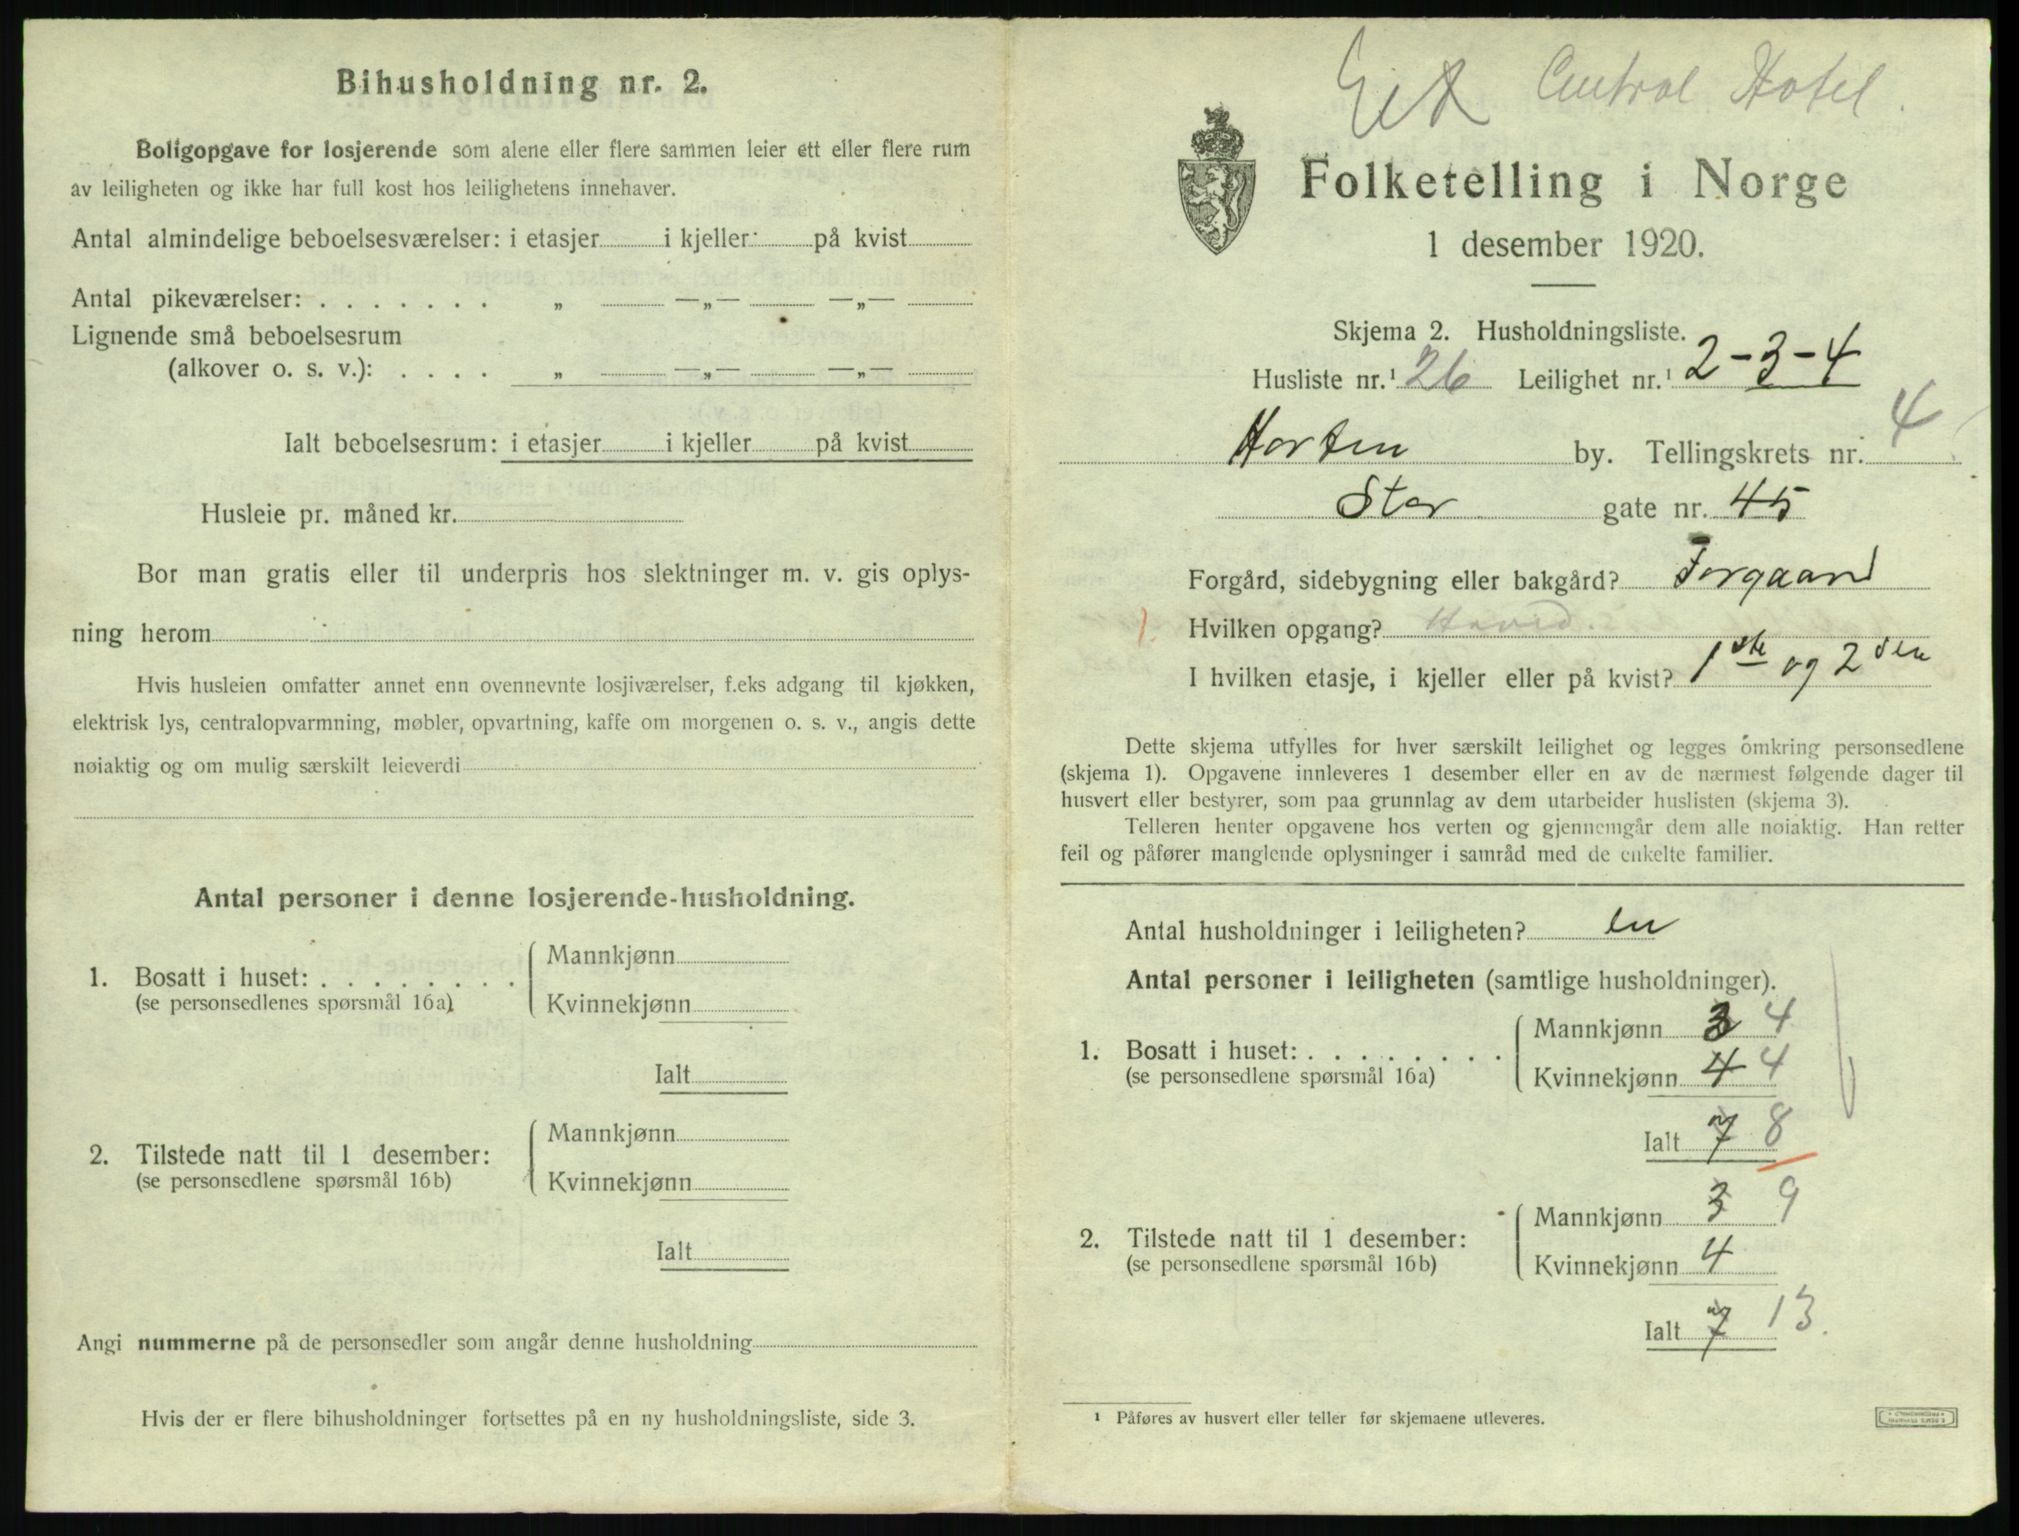 Bihusholdning nr. 2.
Boligopgave for losjerende som alene eller flere sammen leier ett eller flere rum
av leiligheten og ikke har full kost hos leilighetens innehaver.
Antal almindelige beboelsesværelser: i etasjer i kjeller på kvist
Antal pikeværelser: . . . . . . . „ —„— —„—
Lignende små beboelsesrum
(alkover o. s. v.): . . . . „ —„— —„—
Ialt beboelsesrum: i etasjer i kjeller på kvist
Husleie pr. måned kr.
Bor man gratis eller til underpris hos slektninger m. v. gis oplys-
ning herom
Hvis husleien omfatter annet enn ovennevnte losjiværelser, f.eks adgang til kjøkken,
elektrisk lys, centralopvarmning, møbler, opvartning, kaffe om morgenen o. s. v., angis dette
nøiaktig og om mulig særskilt leieverdi
Antal personer i denne losjerende-husholdning.
1. Bosatt i huset: . . . . . . . .
(se personsedlenes spørsmål 16a)
Mannkjønn
Kvinnekjønn
Ialt
2. Tilstede natt til 1 desember:
(se personsedlene spørsmål 16b)
Mannkjønn
Kvinnekjønn
Ialt
Angi nummerne på de personsedler som angår denne husholdning
Hvis der er flere bihusholdninger fortsettes på en ny husholdningsliste, side 3.
Central Hotel.
Folketelling i Norge
1 desember 1920.
Skjema 2. Husholdningsliste.
Husliste nr.¹ 26 Leilighet nr.¹ 2-3-4
Horten by. Tellingskrets nr. 4
Stor gate nr. 45
Forgård, sidebygning eller bakgård? Forgaard
1. Hvilken opgang? Hoved.
I hvilken etasje, i kjeller eller på kvist? 1ste og 2den
Dette skjema utfylles for hver særskilt leilighet og legges omkring personsedlene
(skjema 1). Opgavene innleveres 1 desember eller en av de nærmest følgende dager til
husvert eller bestyrer, som paa grunnlag av dem utarbeider huslisten (skjema 3).
Telleren henter opgavene hos verten og gjennemgår dem alle nøiaktig. Han retter
feil og påfører manglende oplysninger i samråd med de enkelte familier.
Antal husholdninger i leiligheten? en
Antal personer i leiligheten (samtlige husholdninger).
1. Bosatt i huset: . . . . . . . .
(se personsedlene spørsmål 16a)
Mannkjønn 3 4
Kvinnekjønn 4 4
Ialt 7 8
2. Tilstede natt til 1 desember:
(se personsedlene spørsmål 16b)
Mannkjønn 3 9
Kvinnekjønn 4
Ialt 7 13.
¹ Påføres av husvert eller teller før skjemaene utleveres.